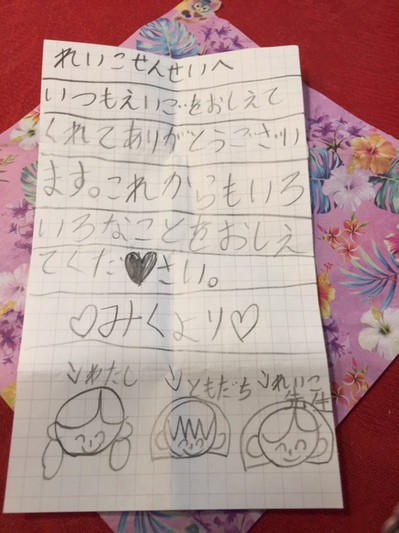 れいこせんせいへ
いつもえいごをおしえて
くれてありがとうござい
ます。これからもいろ
いろなことをおしえ
てくだ♥さい。
♡みくより♡
↓わたし ↓ともだち ↓れいこ
先生